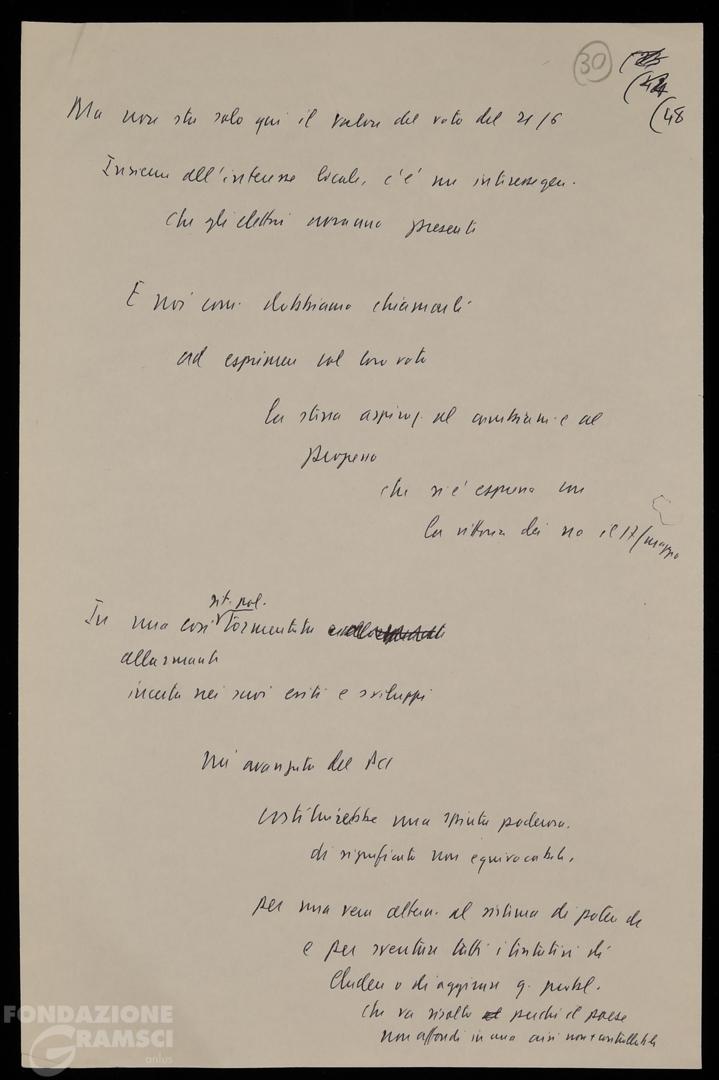 30
(48
Ma non sta solo qui il valore del voto del 21/6
Insieme all'interesse locale, c'è un interesse gen.
che gli elettori avranno presenti
E noi com. dobbiamo chiamarli
ad esprimere col loro voto
la stessa aspiraz. al cambiam. e al
progresso
che si è espressa con
la vittoria dei no il 17/maggio
sit. pol.
In una così tormentata
allarmante
incerta nei suoi esiti e sviluppi
un'avanzata del PCI
costituirebbe una spinta poderosa.
di significato non equivocabile,
per una vera altern. al sistema di potere dc
e per sventare tutti i tentativi di
eludere o di aggirare q. probl.
che va risolto perché il paese
non affondi in una crisi non + controllabile
FONDAZIONE
GRAMSCI
onlus